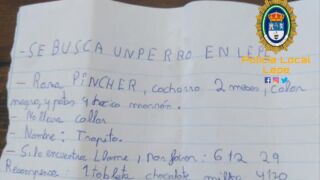 - SE BUSCA UN PERRO EN LEPE
Policía Local
Lepe
- Raza PINCHER, cachorro 2 meses, color
negro, y patas y hocico marrón.
- No lleva collar
- Nombre: Trapito.
- Si lo encuentra llame, por favor: 612 29
Recompensa: 1 tableta chocolate milka 4/20